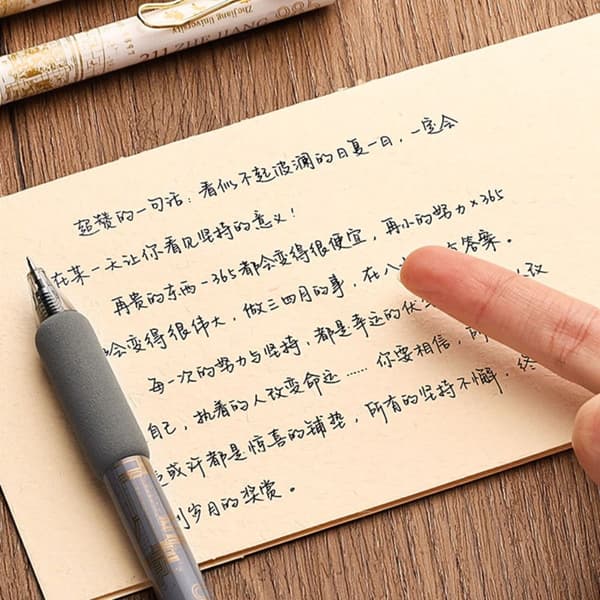 ZheJiang University
1897
211 ZHE JIANG
超赞的一句话：看似不起波澜的日复一日，一定会
在某一天让你看见坚持的意义！
再贵的东西一365都会变得很便宜，再小的努力×365
会变得很伟大，做三四月的事，在八 答案。
每一次的努力与坚持，都是幸运的伏 改
自己，执着的人改变命运……你要相信，所
或许都是惊喜的铺垫，所有的坚持不懈，终
到岁月的奖赏。